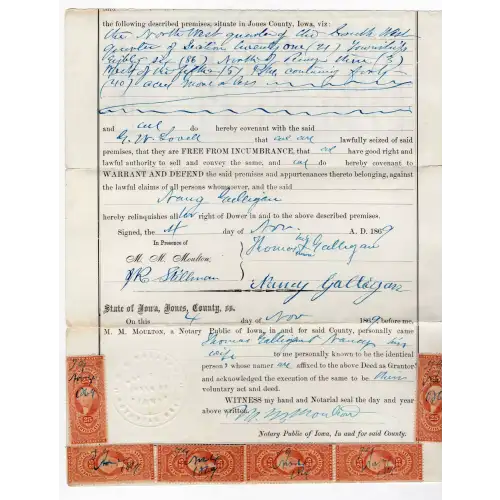 the following described premises, situate in Jones County, Iowa, viz:
The North West quarter of the South West
quarter of Section twenty one (21) Township
Eighty Six (86) North of Range three (3)
West of the fifth (5) P.M. containing Forty
(40) acres more or less
and we do hereby covenant with the said
G. W. Lovell that we are lawfully seized of said
premises, that they are FREE FROM INCUMBRANCE, that we have good right and
lawful authority to sell and convey the same, and we do hereby covenant to
WARRANT AND DEFEND the said premises and appurtenances thereto belonging, against
the lawful claims of all persons whomsoever, and the said
Nancy Galligan
hereby relinquishes all her right of Dower in and to the above described premises.
Signed, the 4 day of Nov. A. D. 1869
In Presence of
M. M. Moulton,
J R Stillman
Thomas his mark Galligan
Nancy Galligan
State of Iowa, Jones, County, ss.
On this 4 day of Nov 1869 before me,
M. M. MOULTON, a Notary Public of Iowa, in and for said County, personally came
Thomas Galligan & Nancy his
wife to me personally known to be the identical
person s whose name are affixed to the above Deed as Grantor s
and acknowledged the execution of the same to be their
voluntary act and deed.
WITNESS my hand and Notarial seal the day and year
above written. M M Moulton
Notary Public of Iowa, In and for said County.